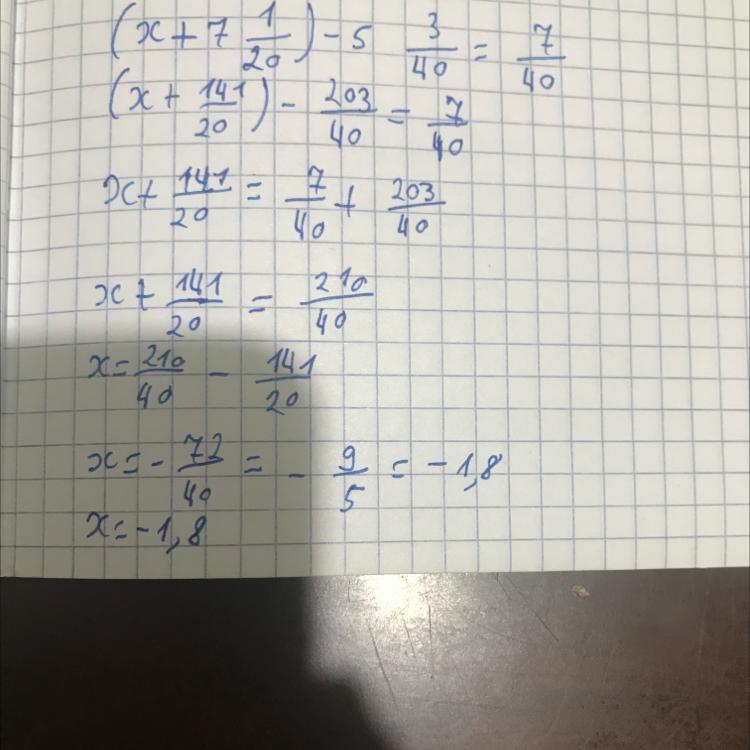 (x + 7 1/20) - 5 3/40 = 7/40
(x + 141/20) - 203/40 = 7/40
x + 141/20 = 7/40 + 203/40
x + 141/20 = 210/40
x = 210/40 - 141/20
x = - 72/40 = - 9/5 = -1,8
x = -1,8